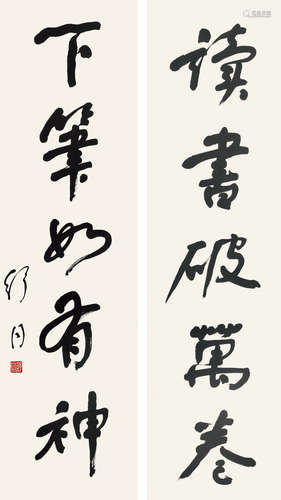 读書破萬卷
下筆如有神
舒同